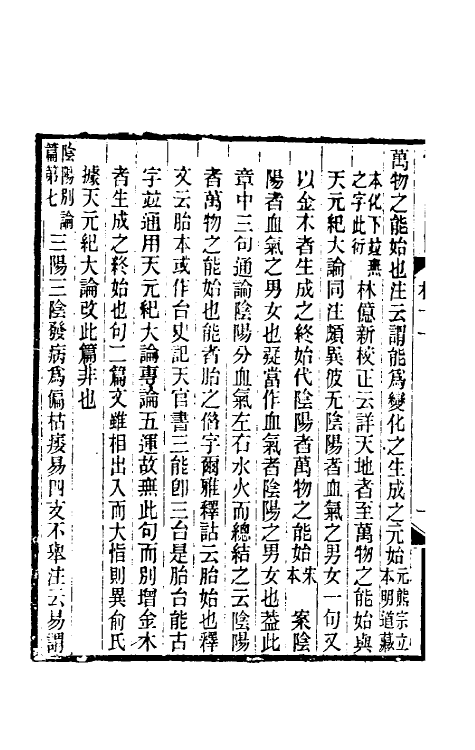 萬物之能始也注云謂能爲變化之生成之元始元熊宗立本明道藏
本化下竝無之字此衍林億新校正云詳天地者至萬物之能始與
天元紀大論同注頗異彼无陰陽者血氣之男女一句又
以金木者生成之終始代陰陽者萬物之能始宋本案陰
陽者血氣之男女也疑當作血氣者陰陽之男女也葢此
章中三句通論陰陽分血氣左右水火而總結之云陰陽
者萬物之能始也能者胎之借字爾雅釋詁云胎始也釋
文云胎本或作台史記天官書三能卽三台是胎台能古
字竝通用天元紀大論專論五運故無此句而別增金木
者生成之終始也句二篇文雖相出入而大恉則異俞氏
據天元紀大論改此篇非也
陰陽別論篇第七三陽三陰發病爲偏枯痿易四支不舉注云易謂